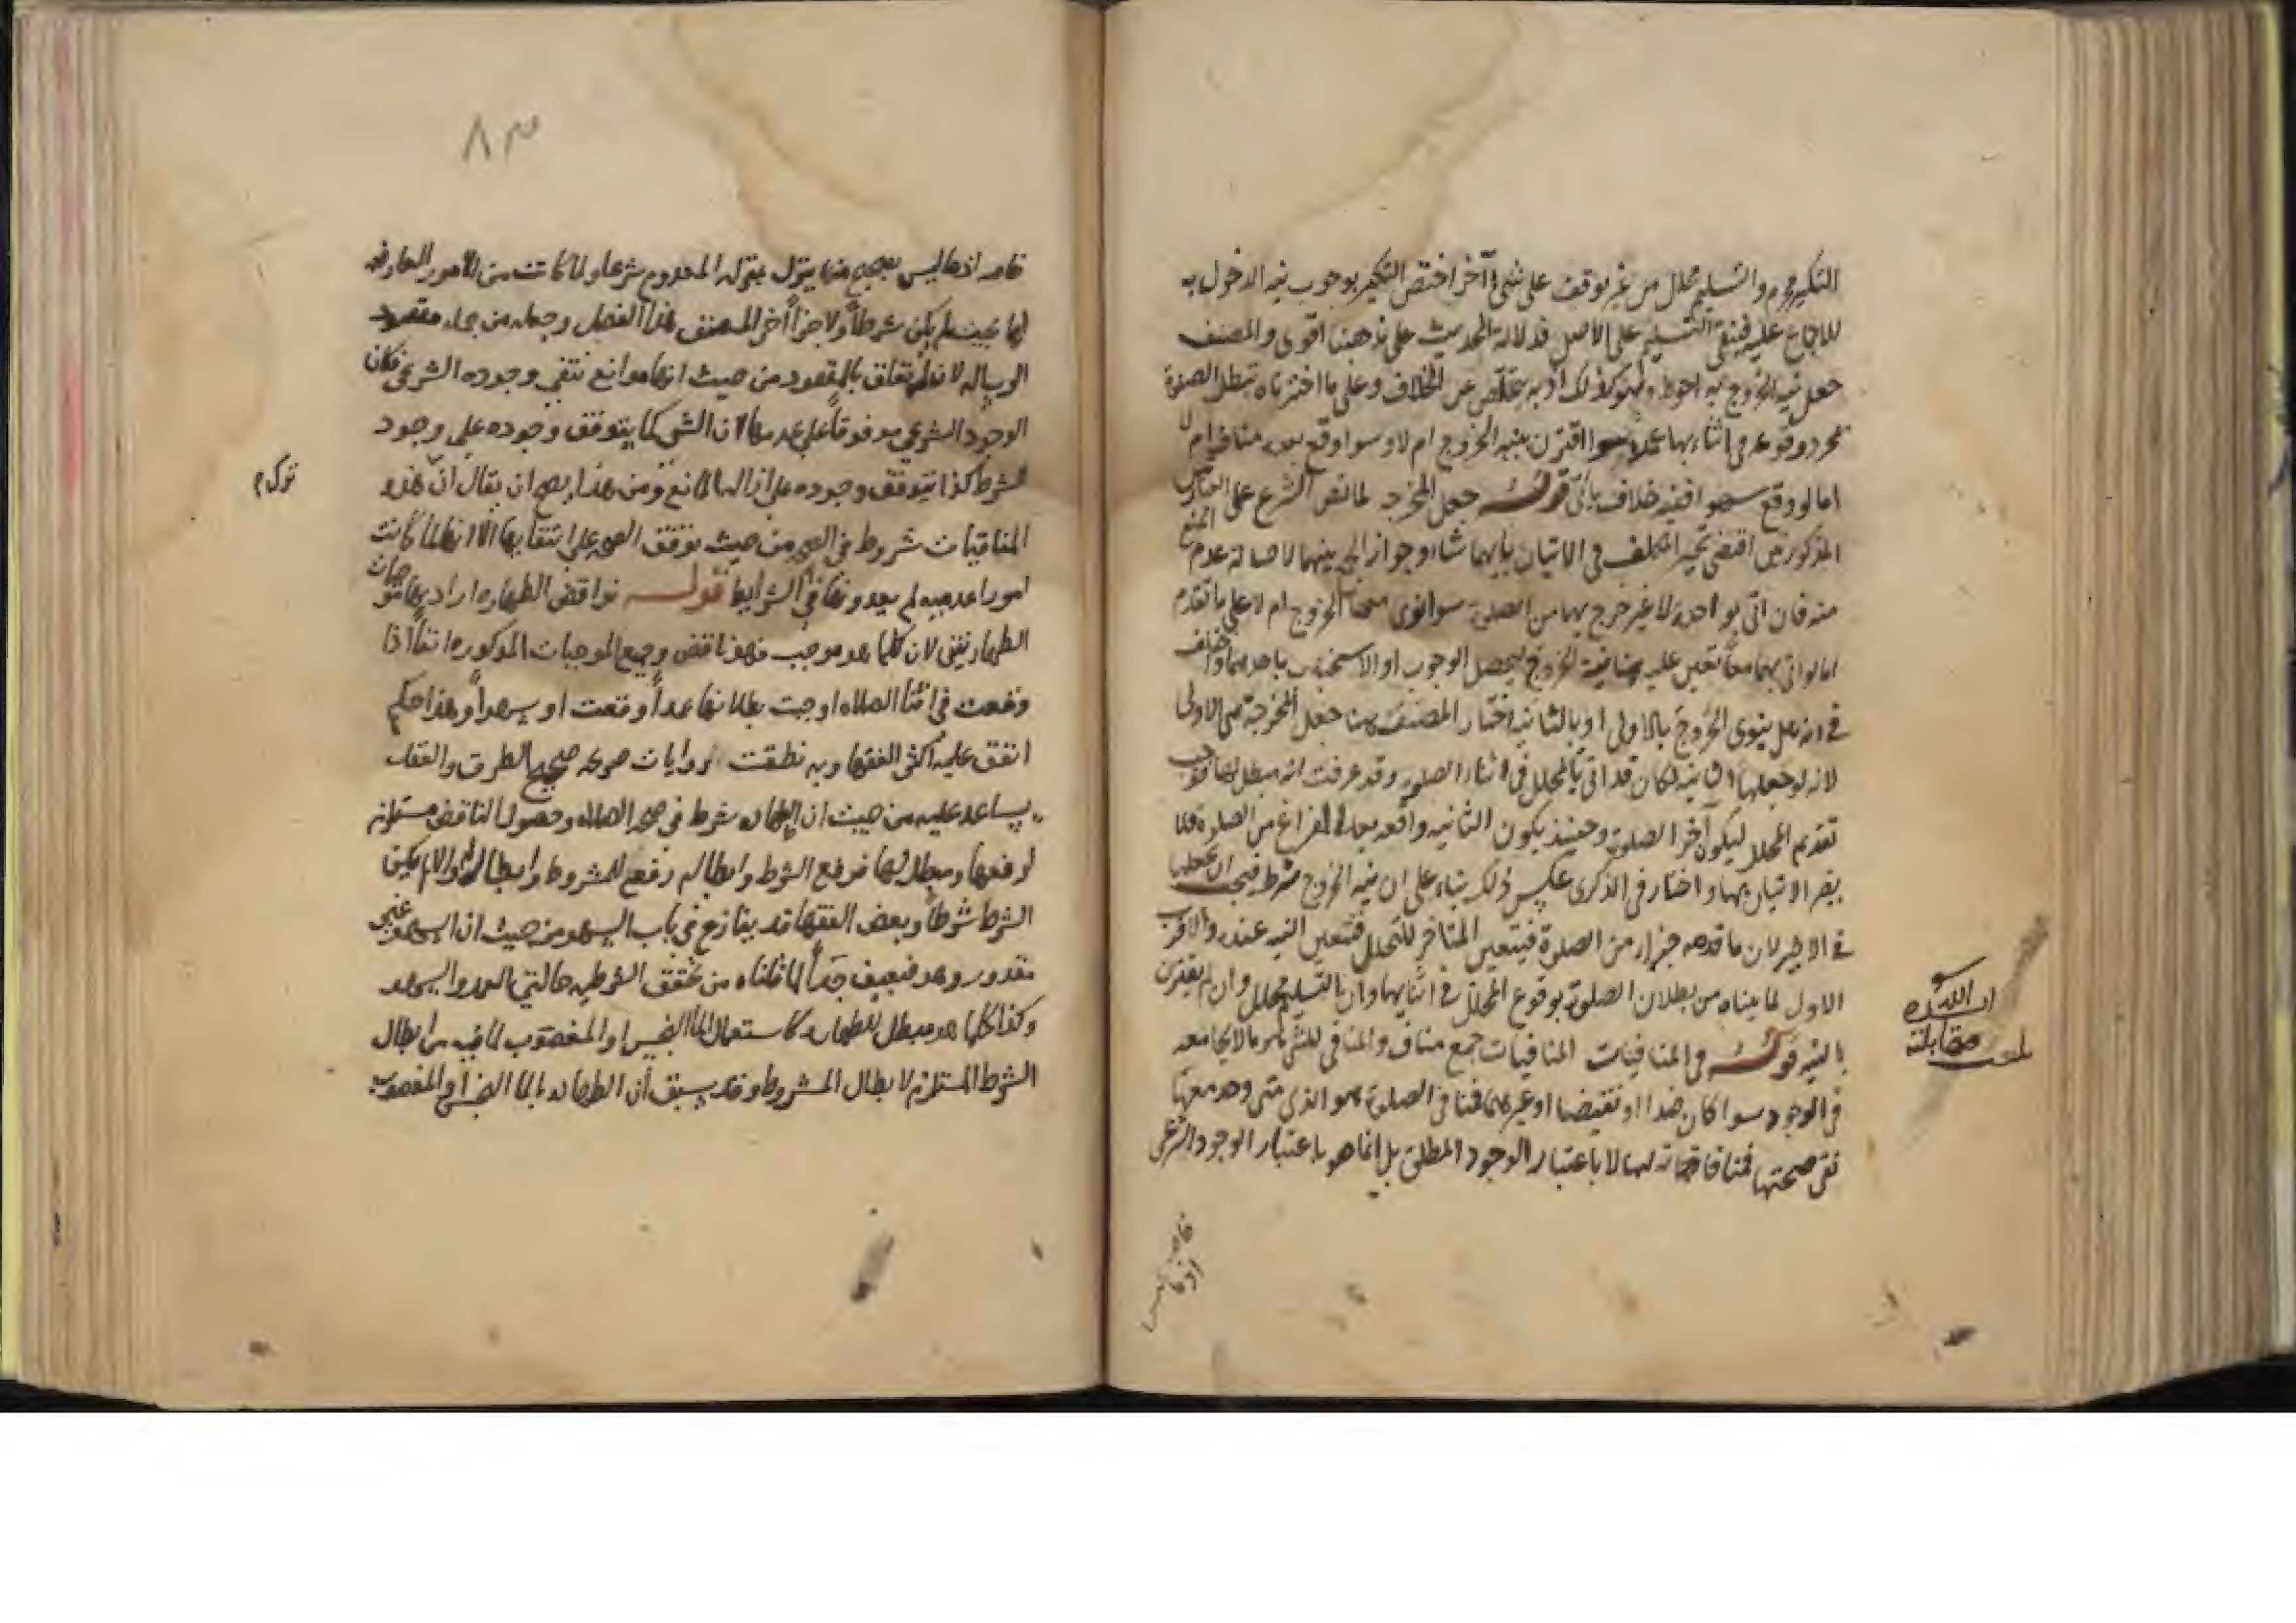 التكبير محرم والتسليم محلل من غير توقف على شيء آخر اختص التكبير بوجوب نية الدخول به
للاجماع عليه فيبقى التسليم على الاصل فدلالة الحديث على مذهبنا اقوى والمصنف
جعل نية الخروج به احوط وهو كذلك اذ به يتخلص عن الخلاف وعلى ما اخترناه تبطل الصلوة
بمجرد وقوعه في اثنائها عمدا سوا اقترن بنية الخروج ام لا وسوا وقع بعده مناف ام لا
اما لو وقع سهوا ففيه خلاف يأتي قوله جعل المخرجه لما نص الشرع على
المذكورتين اقتضى تخيير المكلف في الاتيان بايهما شاء وجواز الجمع بينهما لاصالة عدم المنع
منه فان اتى بواحدة لا غير خرج بها من الصلوة سوا نوى معها الخروج ام لا على ما تقدم
اما لو اتى بهما معا تعين عليه نية الخروج ليحصل الوجوب او الاستحباب باحديهما واختلف
في انه هل ينوى الخروج بالاولى او بالثانية اختار المصنف هنا جعل المخرجة هي الاولى
لانه لو جعلها الثانية لكان قد اتى بالمحلل في اثناء الصلوة وقد عرفت انه مبطل لها فوجب
تقديم المحلل ليكون آخر الصلوة وحينئذ يكون الثانية واقعة بعد الفراغ من الصلوة فلا
يضر الاتيان بها واختار في الذكرى عكس ذلك بناء على ان نية الخروج شرط فيجب ان يجعلها
في الاخير لان ما قدمه جزء من الصلوة فيتعين المتاخر للتحلل فتتعين النية عنده والاقرب
الاول لما بيناه من بطلان الصلوة بوقوع المحلل في اثنايها وان التسليم محلل وان لم يقترن
بالنية قوله في المنافيات المنافيات جمع مناف والمنافي للشيء هو ما لا يجامعه
في الوجود سوا كان ضدا او نقيضا او غيرهما فمنافي الصلوة هو الذي متى وجد معها
نفى صحتها فمنافاته لها لا باعتبار الوجود المطلق بل انما هو باعتبار الوجود الشرعي
بلغت مقابلة
ايده الله
خاصة اذ ما ليس
٨٣
خاصه اذ ما ليس بصحيح منها ينزل بمنزلة المعدوم شرعا ولما كانت من الامور العارضه
لها بحيث لم يكن شرطاً ولا جزأ اخر المصنف هذا الفصل وجعله من جملة مقصود
الرساله لانه له تعلق بالمقصود من حيث انها موانع تنفي وجوده الشرعي فكان
الوجود الشرعي موقوفاً على عدمها لان الشي كما يتوقف وجوده على وجود
الشرط كذا يتوقف وجوده على ازالة المانع ومن هذا يصح ان يقال ان هذه
المنافيات شروط في الصحه من حيث توقف الصحه على انتفائها الا انها لما كانت
امورا عدميه لم يعدوها في الشرايط قوله نواقض الطهاره اراد بها موجبات
الطهارتين لان كلما هو موجب فهو ناقض وجميع الموجبات المذكوره انفاً اذا
وقعت في اثنا الصلاه اوجبت بطلانها عمداً وقعت او سهواً وهذا حكم
اتفق عليه اكثر الفقها وبه نطقت روايات صريحه صحيح الطرق والعقل
يساعد عليه من حيث ان الطهاره شرط في صحه الصلاه وحصول الناقض مستلزم
لرفعها ومبطل لها فرفع الشرط وابطاله رفع للمشروط وابطال له والا لم يكن
الشرط شرطاً وبعض الفقها قد ينازع في باب السهو من حيث ان السهو غير
مقدور وهو ضعيف جداً لما قلناه من تحقق الشرطيه حالتي العمد والسهو
وكذا كلما هو مبطل للطهاره كاستعمال الما النجس او المغصوب لما فيه من ابطال
الشرط المستلزم لابطال المشروط وقد سبق ان الطهاره بالما النجس او المغصوب